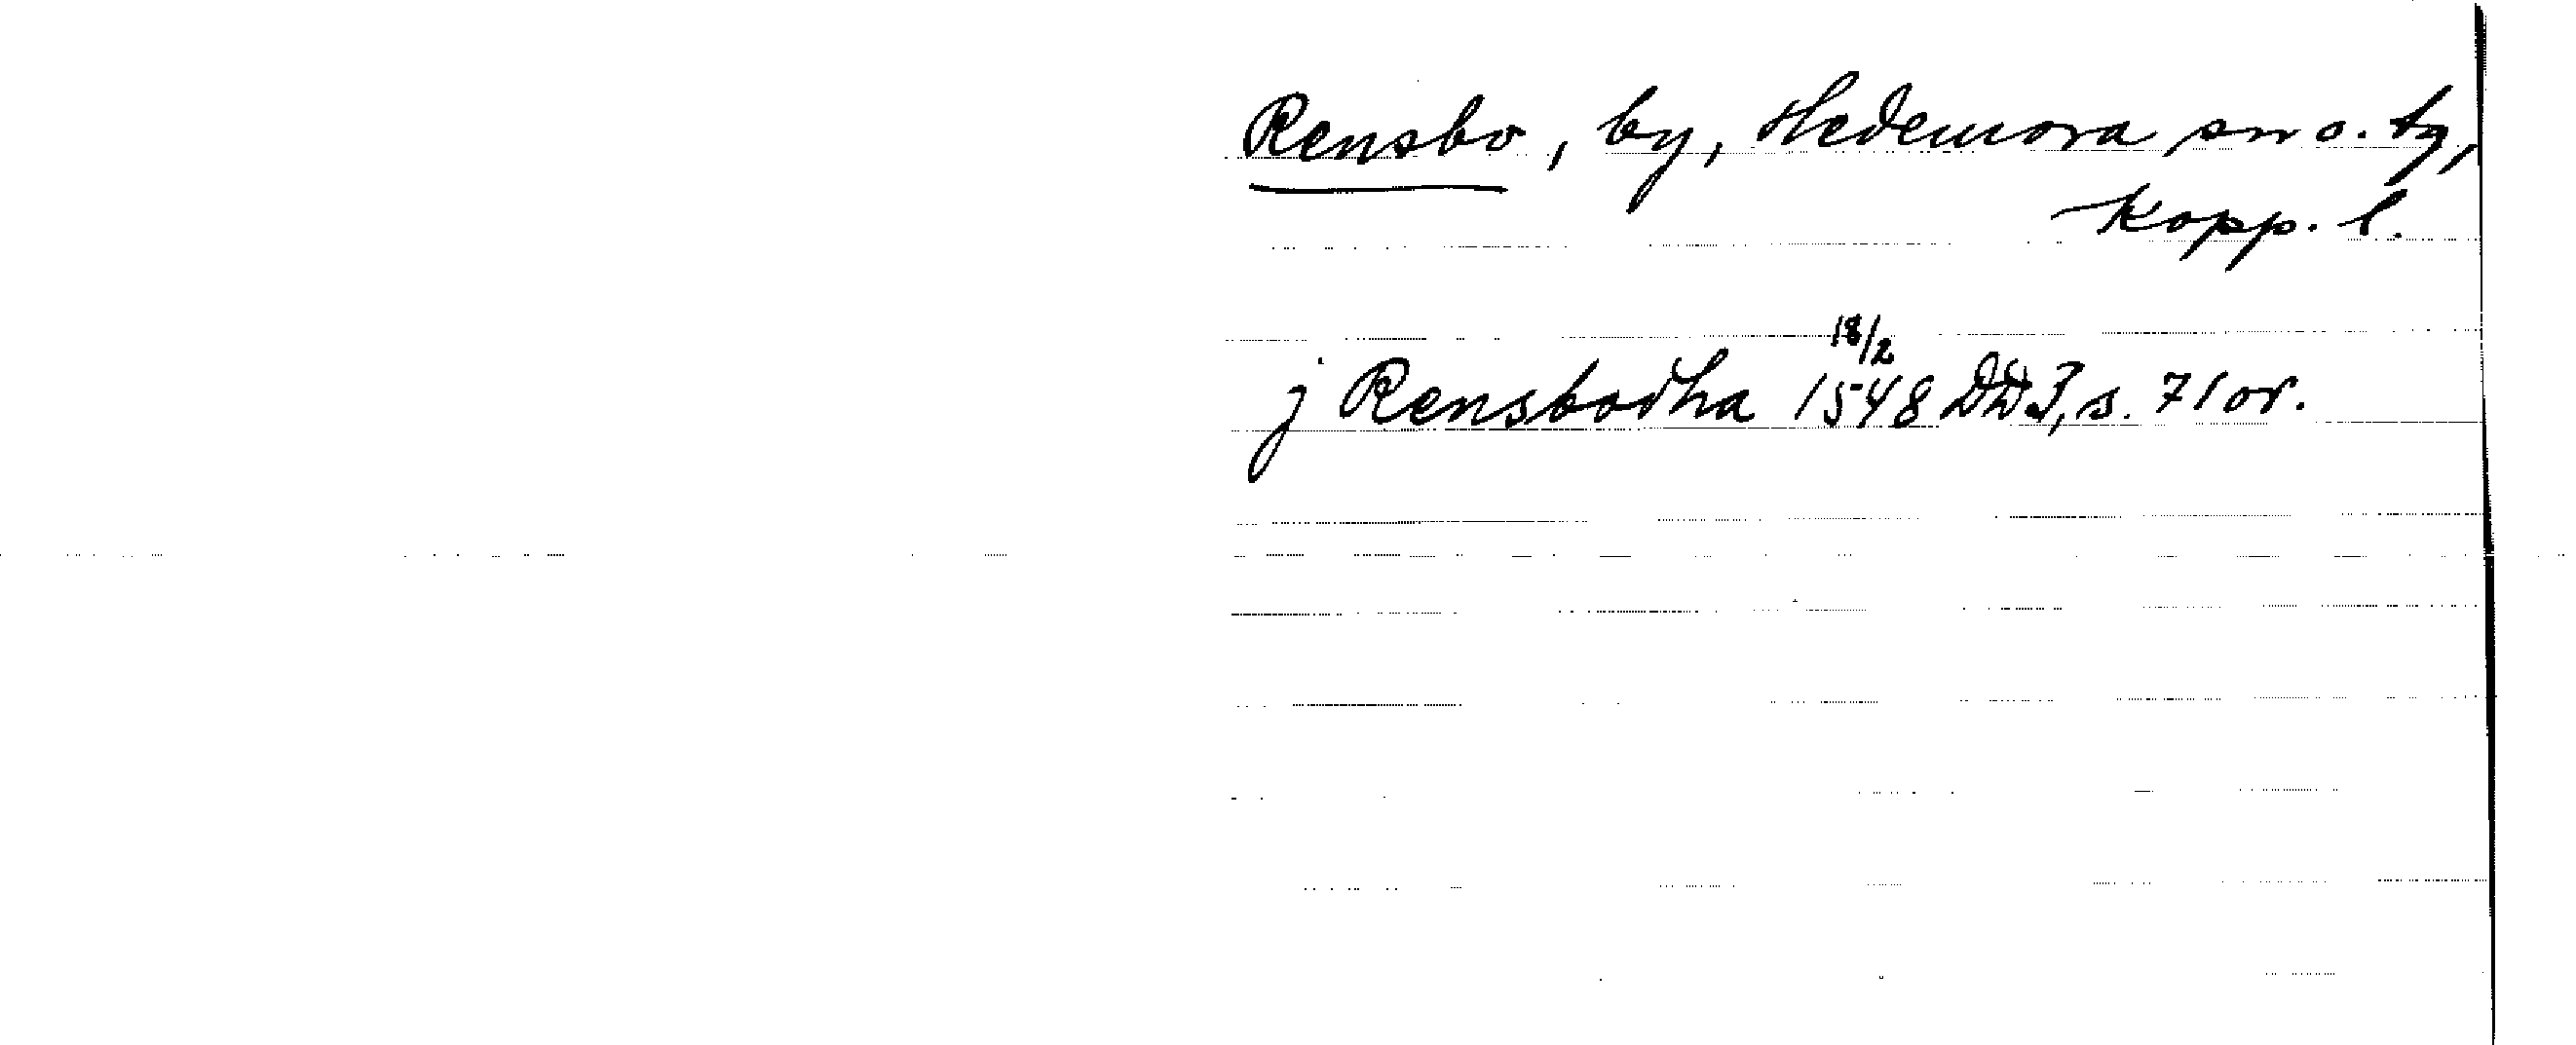 Rensbo, by, Hedemora sn o. tg,
Kopp. l.
18/2
j Rensbodha 1548 DD 3, s. 71 or.